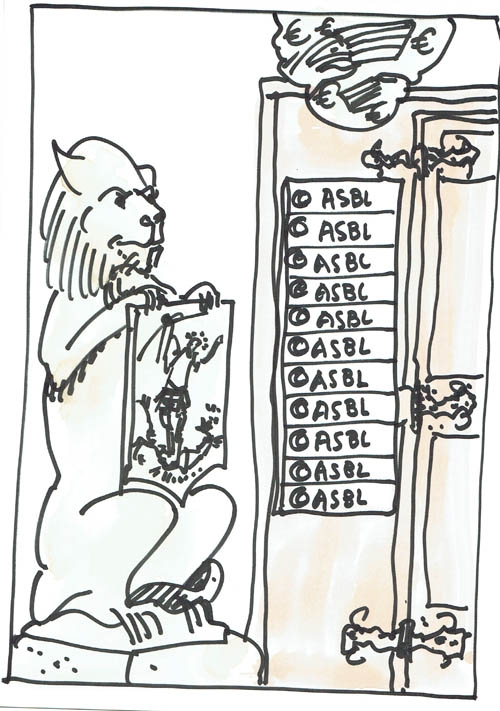 € € €
€
ASBL
ASBL
ASBL
ASBL
ASBL
ASBL
ASBL
ASBL
ASBL
ASBL
ASBL